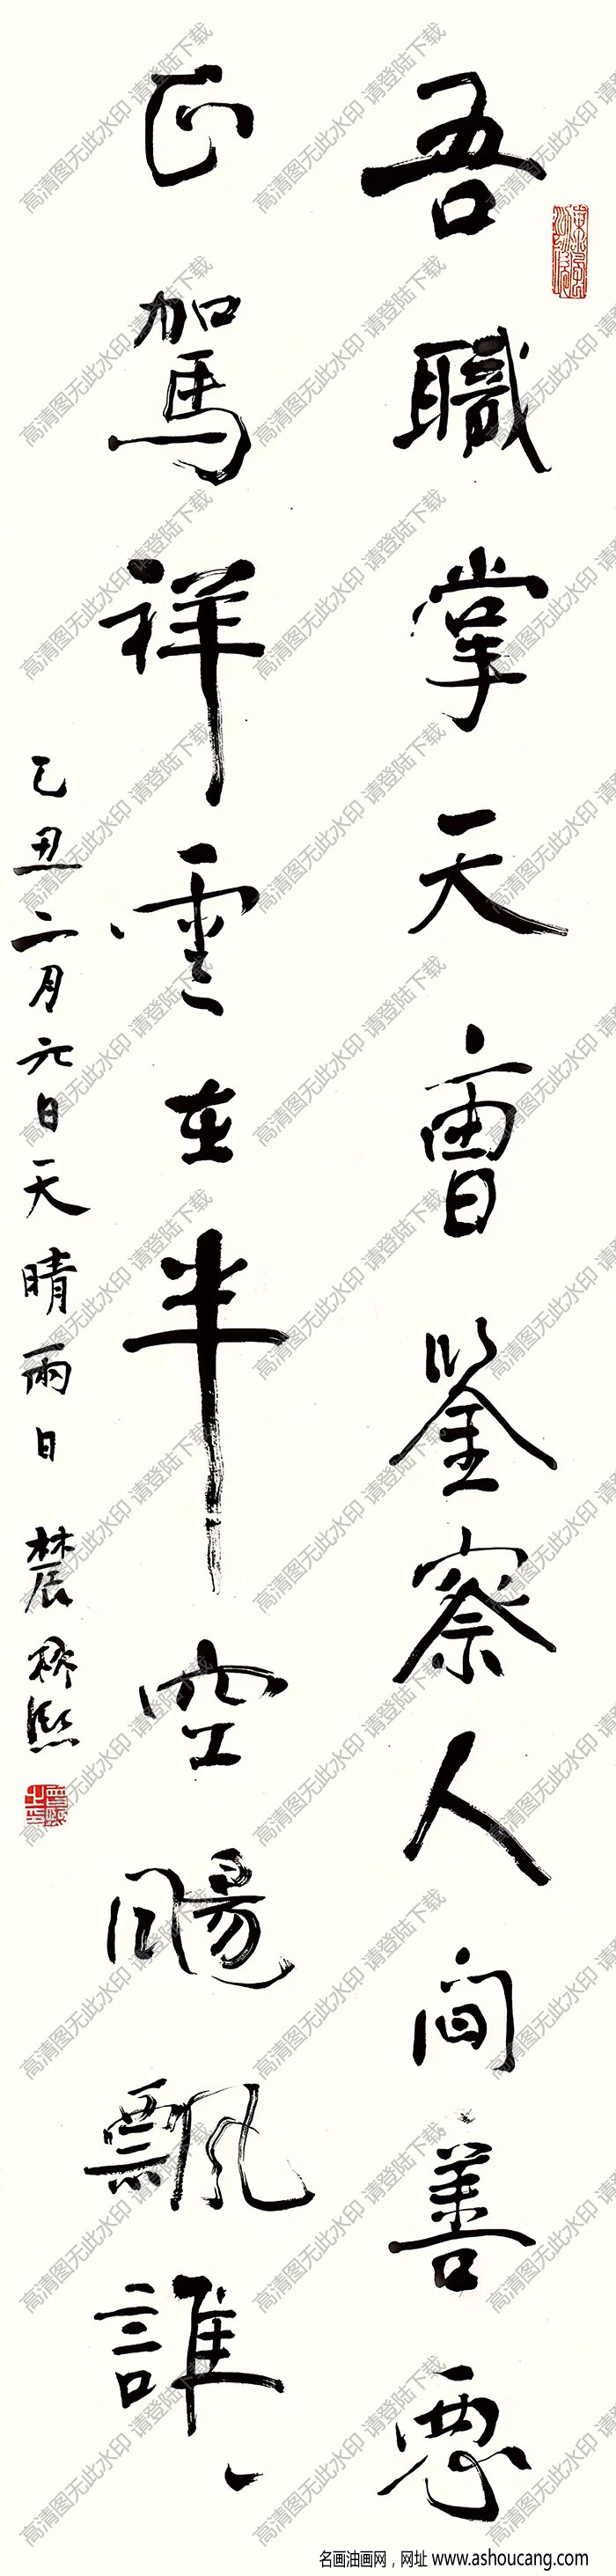 吾職掌天曹鑒察人間善惡
正駕祥雲在半空颺飄誰
己丑二月元日天晴兩日
高清图无此水印 请登陆下载
名画油画网，网址 www.ashoucang.com